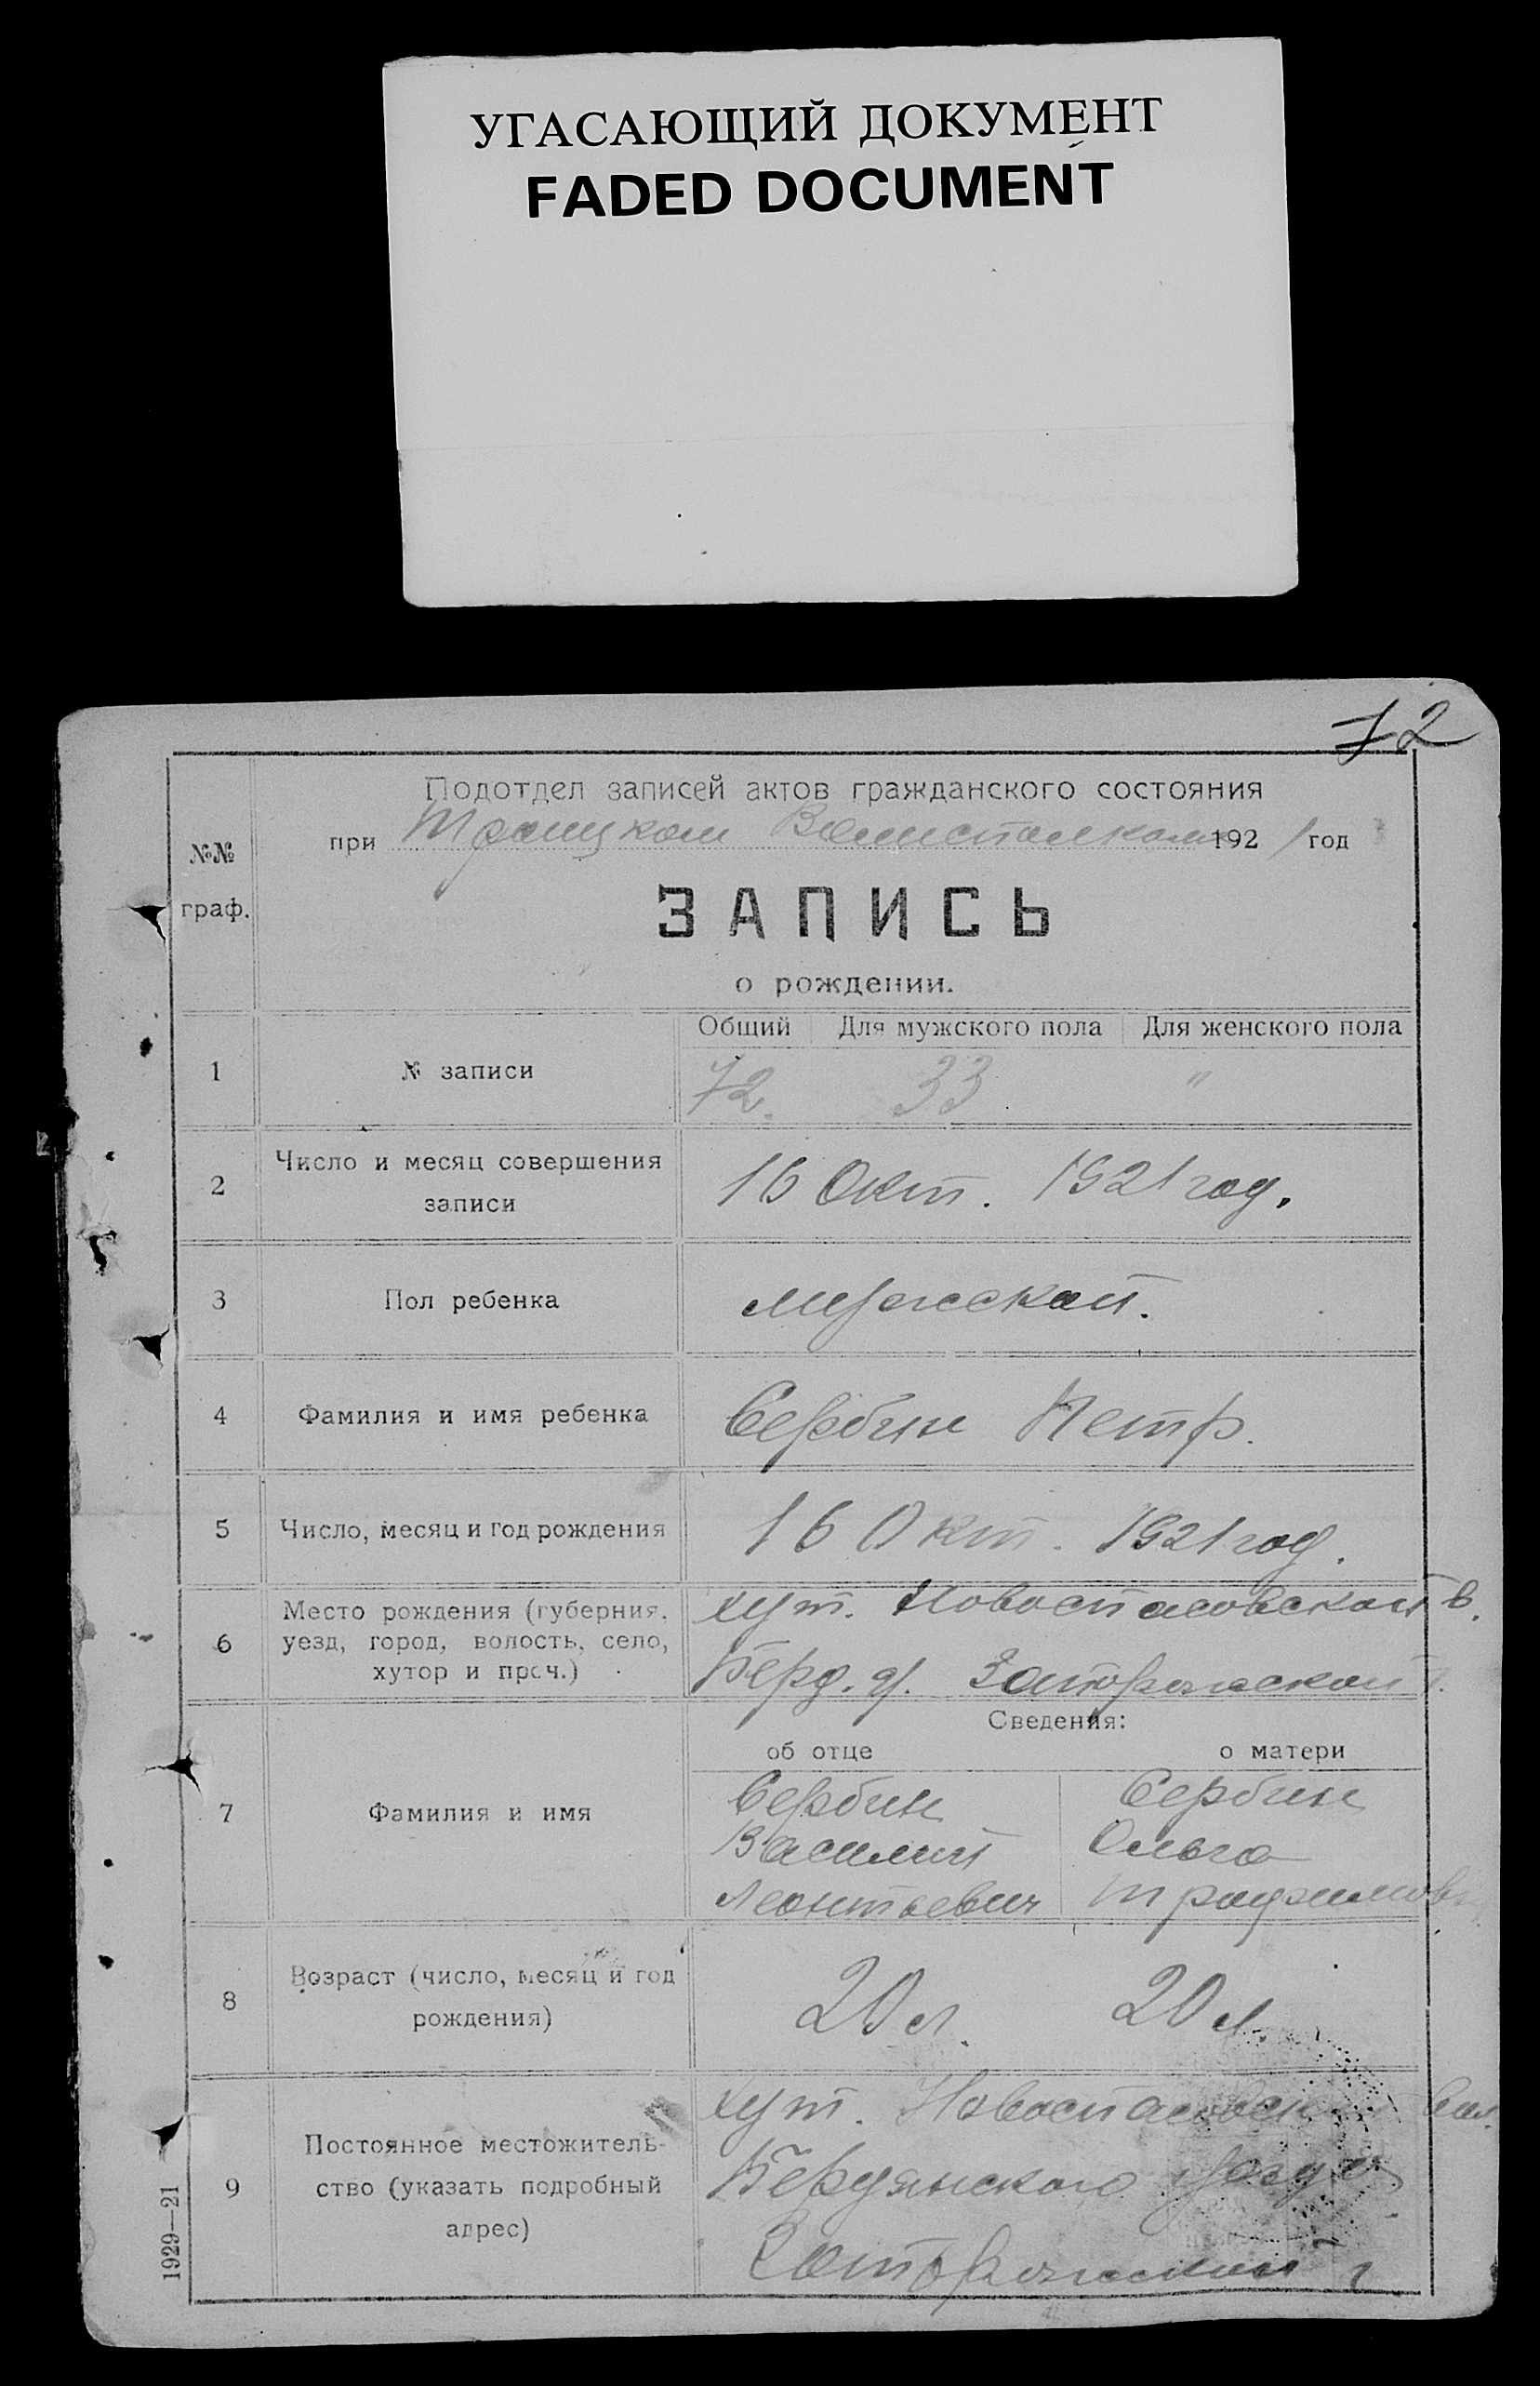 УГАСАЮЩИЙ ДОКУМЕНТ
FADED DOCUMENT
72
Подотдел записей актов гражданского состояния
№№ граф.
при Троицком Волисполкоме 192 1 год
ЗАПИСЬ
о рождении.
Общий Для мужского пола Для женского пола
1 № записи 72. 33 "
2 Число и месяц совершения записи 16 Окт. 1921 год.
3 Пол ребенка мужской.
4 Фамилия и имя ребенка Сербин Петр.
5 Число, месяц и год рождения 16 Окт. 1921 год.
6 Место рождения (губерния, уезд, город, волость, село, хутор и проч.)
хут. Новоспасовской в.
Берд. у. Запорожской г.
Сведения:
об отце о матери
7 Фамилия и имя
Сербин Сербин
Василий Ольга
Леонтьевич Трофимов
8 Возраст (число, месяц и год рождения) 20 л. 20 л.
9 Постоянное местожитель-
ство (указать подробный
адрес)
хут. Новоспасовск вол.
Бердянского уезда
Запорожской г
1929—21